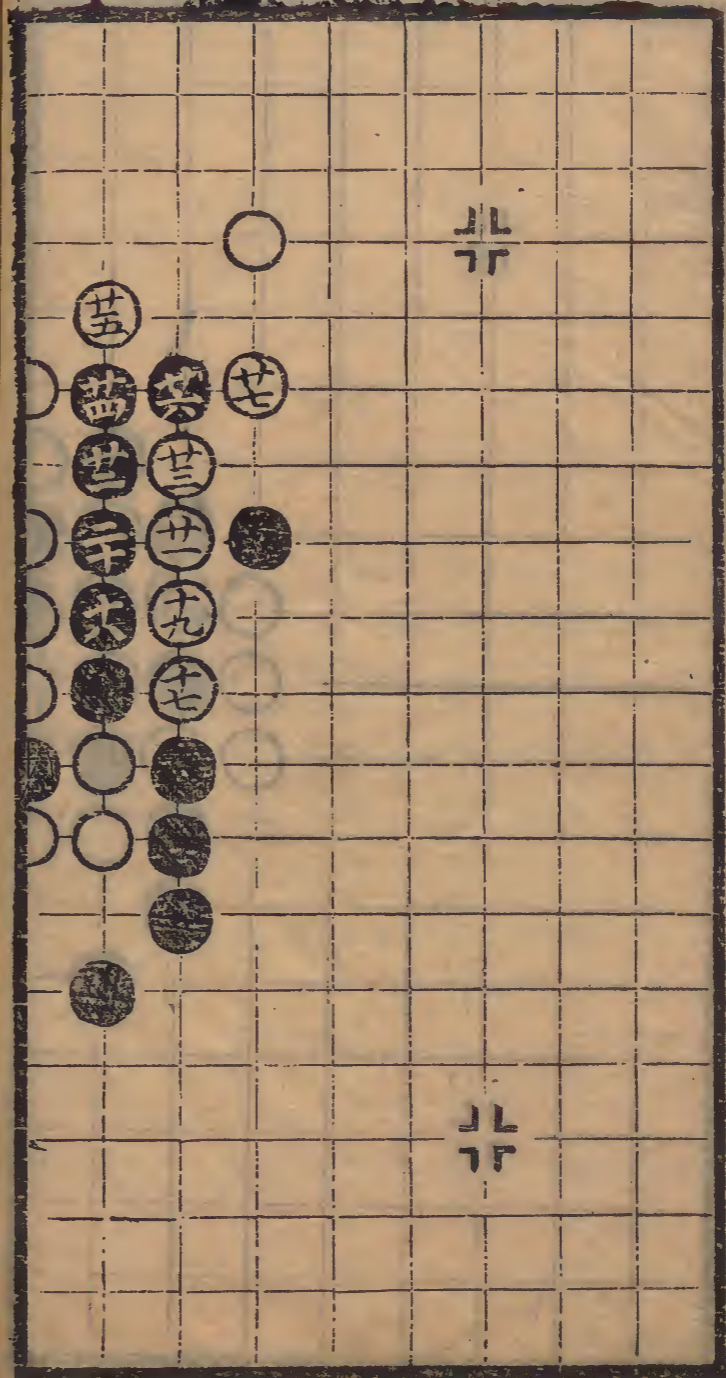 廿五
廿四 廿六 廿七
廿二 廿三
二十 廿一
十八 十九
十七